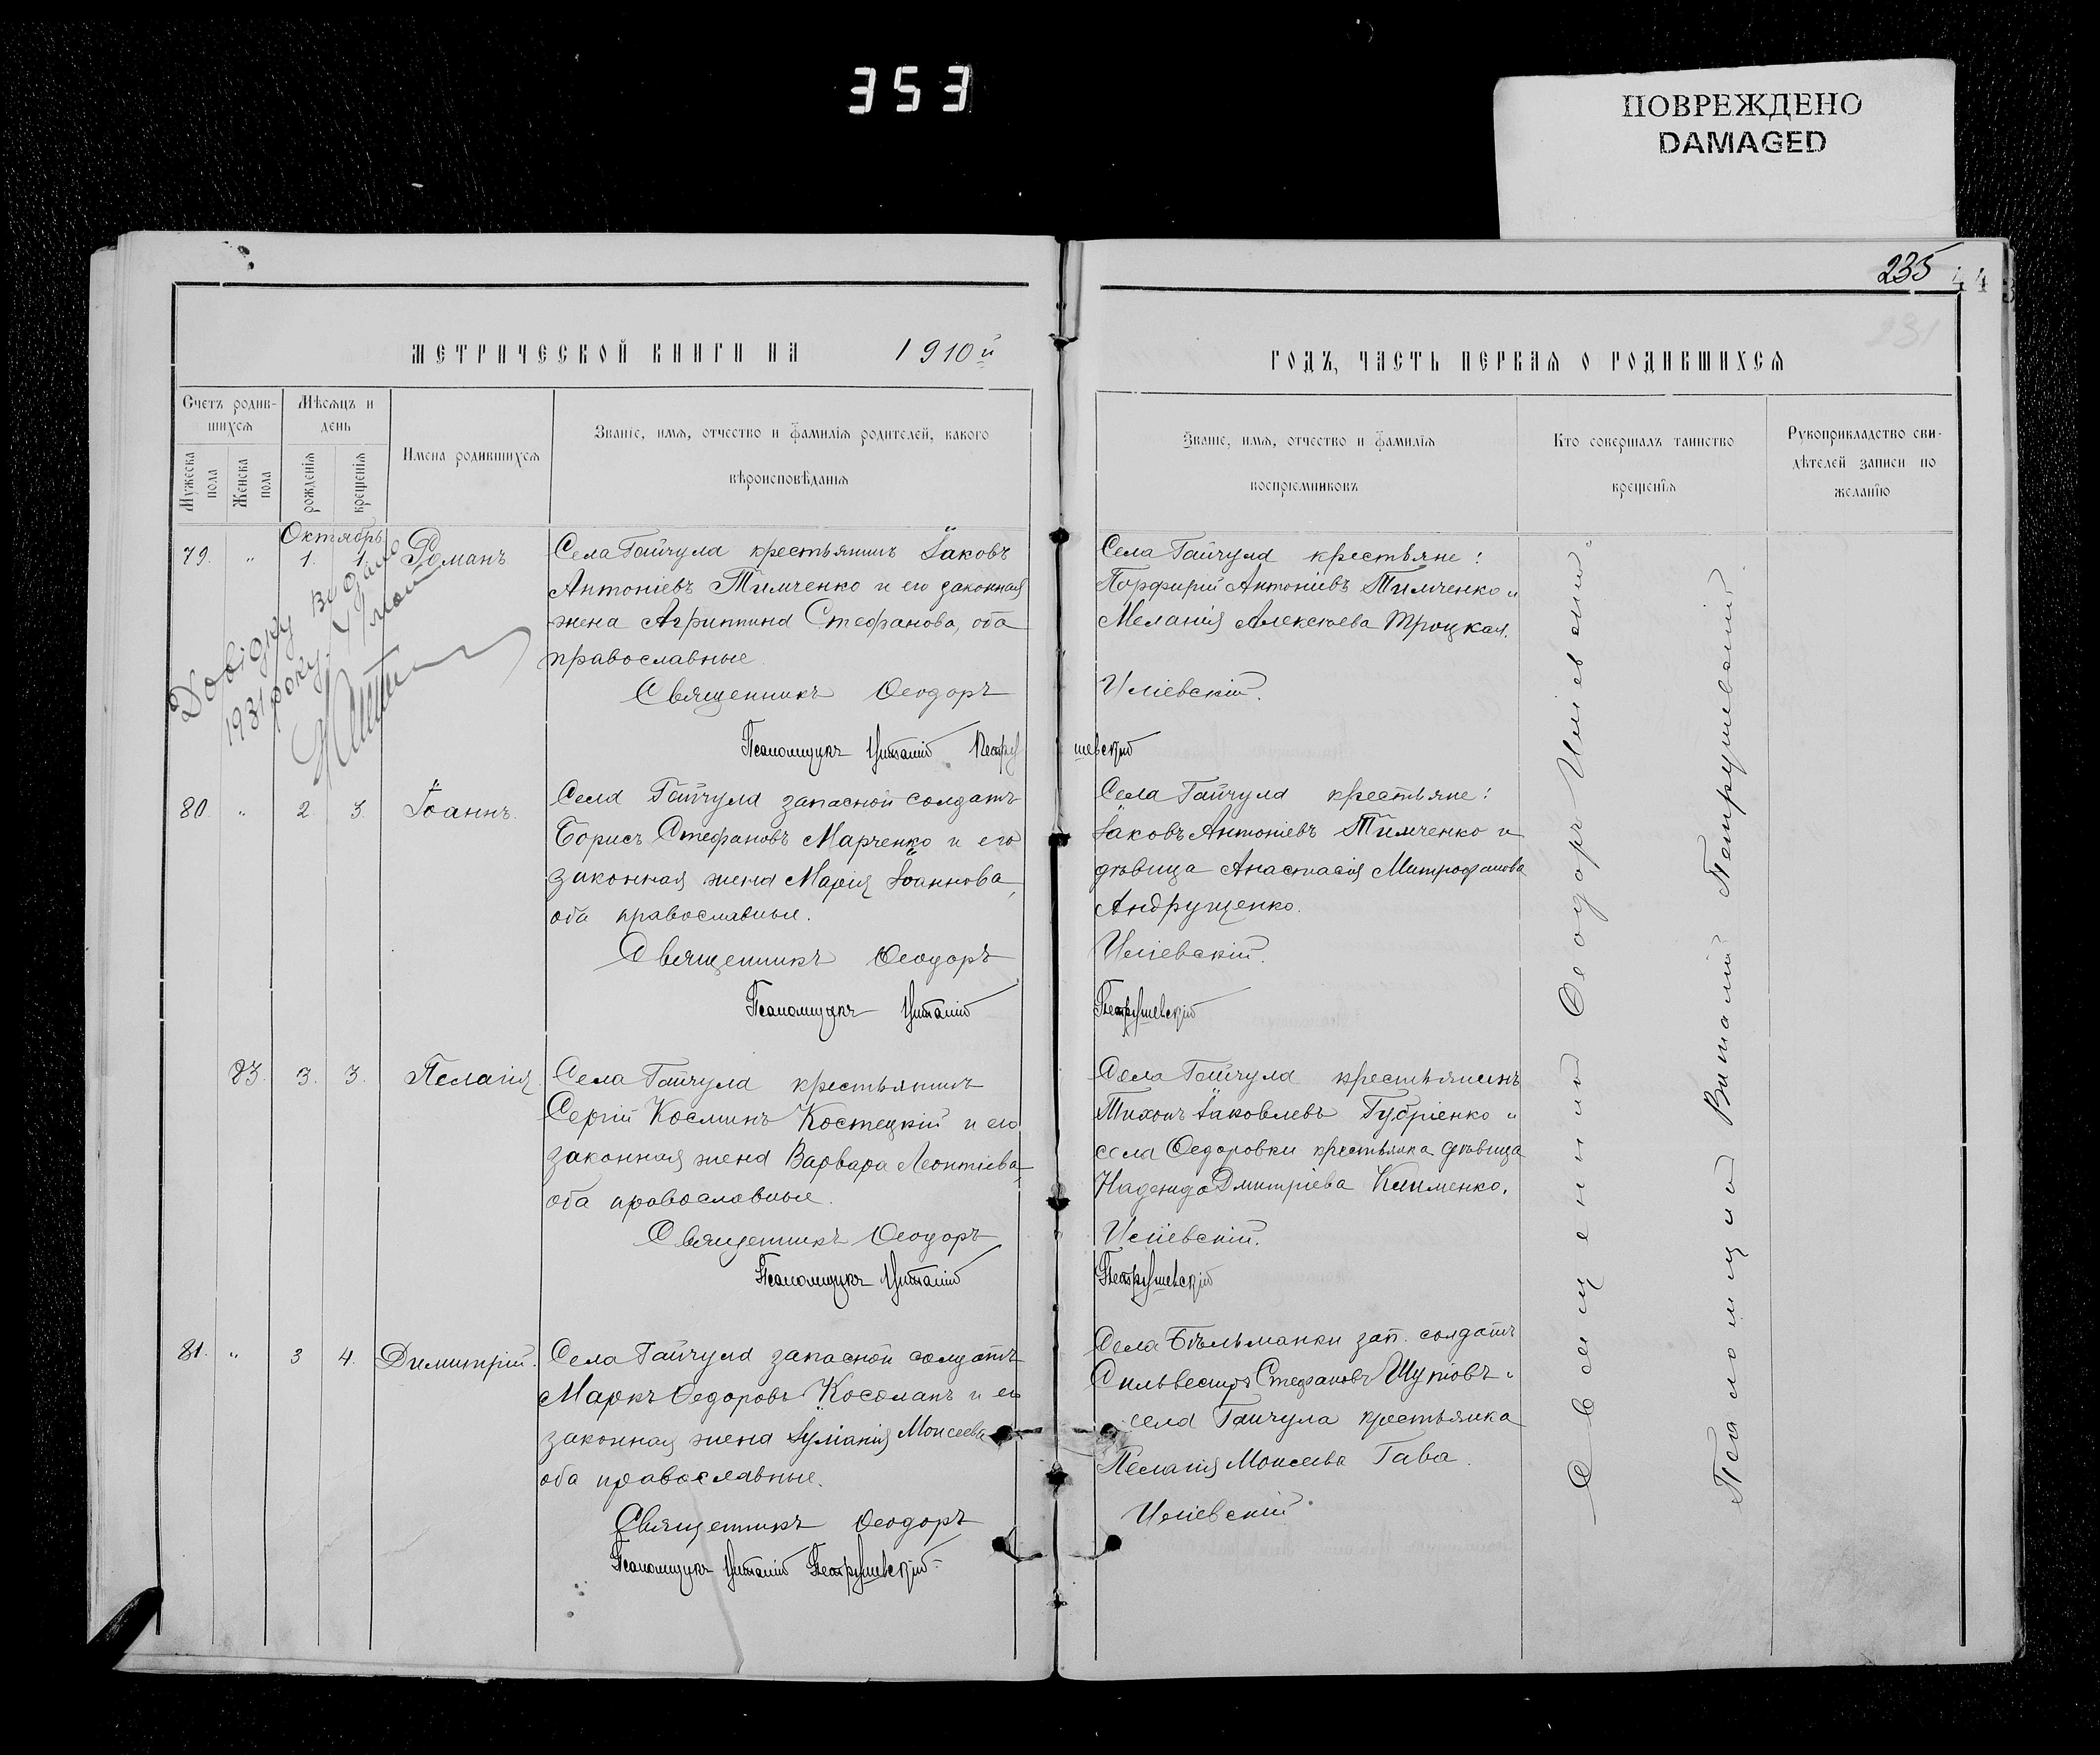 353
ПОВРЕЖДЕНО
DAMAGED
235
МЕТРИЧЕСКОЙ КНИГИ НА 1910й
Счетъ родив-
шихся
Мѣсяцъ и
день
Мужеска
пола
Женска
пола
рожденія
крещенія
Имена родившихся
Званіе, имя, отчество и фамилія родителей, какого
вѣроисповѣданія
Октябрь
79. " 1. 1. Романъ
Села Гайчула крестьянинъ Іаковъ
Антоніевъ Тимченко и его законная
жена Агриппина Стефанова, оба
православные
Священникъ Ѳеодоръ
Псаломщикъ Виталій Петру
1931 року
80. " 2. 3. Іоаннъ.
Села Гайчула запасной солдатъ
Борисъ Стефановъ Марченко и его
законная жена Марія Іоаннова,
оба православные.
Священникъ Ѳеодоръ
Псаломщикъ Виталій
83. 3. 3. Пелагія.
Села Гайчула крестьянинъ
Сергій Косминъ Костецкій и его
законная жена Варвара Леонтіева
оба православные.
Священникъ Ѳеодоръ
Псаломщикъ Виталій
81. " 3 4. Димитрій.
Села Гайчула запасной солдатъ
Маркъ Ѳедоровъ и его
законная жена Іуліанія Моисеева
оба православные.
Священникъ Ѳеодоръ
Псаломщикъ Виталій Петрушевскій
231
ГОДЪ, ЧАСТЬ ПЕРВАЯ О РОДИВШИХСЯ
Званіе, имя, отчество и фамилія
воспріемниковъ
Кто совершалъ таинство
крещенія
Рукоприкладство сви-
дѣтелей записи по
желанію
Села Гайчула крестьяне:
Порфирій Антоніевъ Тимченко и
Меланія Алексѣева Троцкая.
шевскій
Села Гайчула крестьяне:
Іаковъ Антоніевъ Тимченко и
дѣвица Анастасія Митрофанова
Андрущенко.
Петрушевскій
Села Гайчула крестьянинъ
Тихонъ Іаковлевъ Губріенко и
села Ѳедоровки крестьянка дѣвица
Надежда Дмитріева Клименко.
Петрушевскій
Села Бѣльманки зап. солдатъ
Сильвестръ Стефановъ и
села Гайчула крестьянка
Пелагія Моисеева Гава.
Священникъ Ѳеодоръ
Псаломщикъ Виталій Петрушевскій